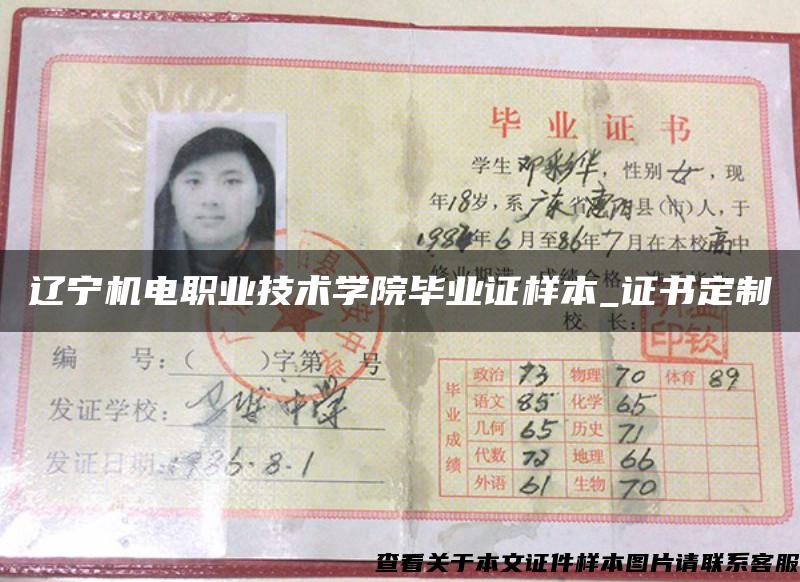 毕业证书
学生邓彩华，性别女，现
年18岁，系广东省惠阳县(市)人，于
1984年6月至86年7月在本校高中
辽宁机电职业技术学院毕业证样本_证书定制
校 长：
编 号：（ ）字第 号
发证学校：
发证日期：1986.8.1
毕业成绩
政治 73 物理 70 体育 89
语文 85 化学 65
几何 65 历史 71
代数 72 地理 66
外语 61 生物 70
查看关于本文证件样本图片请联系客服